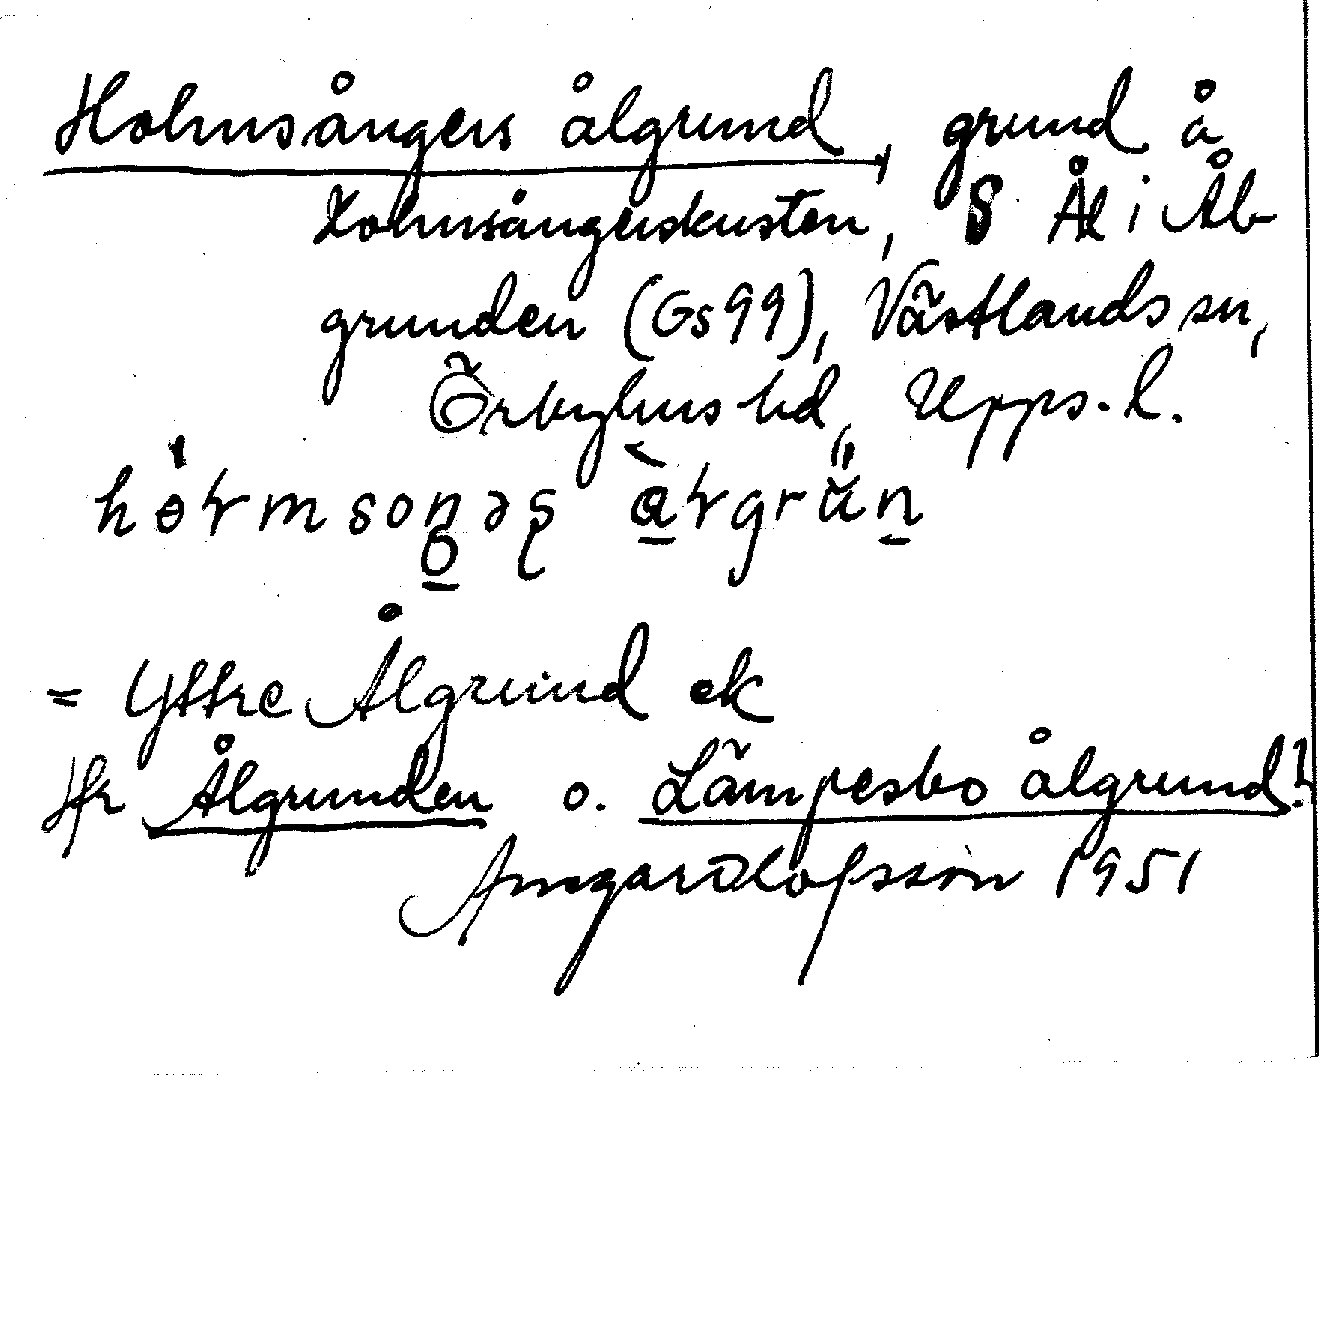 Holmsångers ålgrund, grund å
Holmsångerskusten, S Ål i Ål-
grunden (Gs 99), Västlands sn,
Örbyhus hd, Upps. l.
= Yttre Ålgrund ek
Jfr Ålgrunden o. Lämpesbo ålgrund!
Olofsson 1951